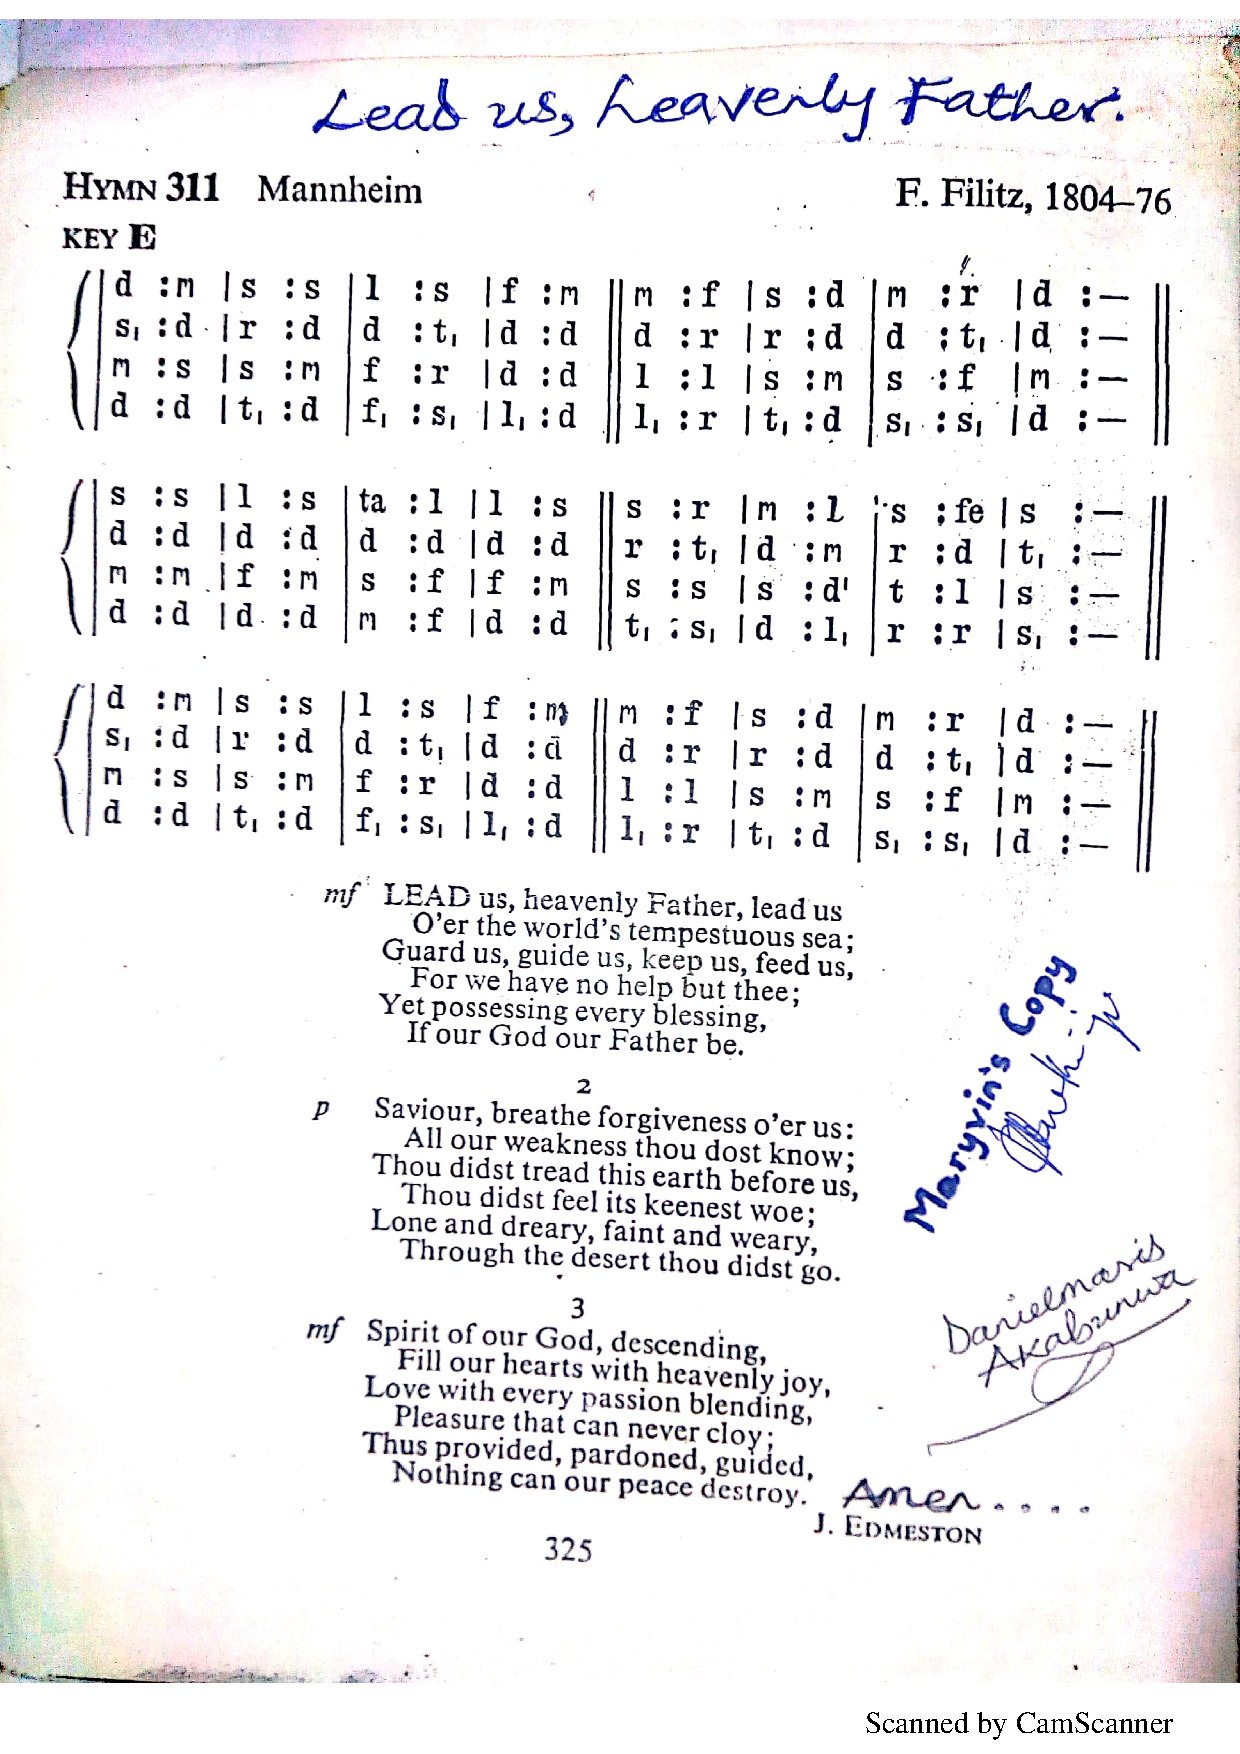 Lead us, heavenly Father.
HYMN 311 Mannheim F. Filitz, 1804–76
KEY E
d :m |s :s |l :s |f :m || m :f |s :d |m :r |d :— ||
s₁ :d |r :d |d :t₁ |d :d || d :r |r :d |d :t₁ |d :— ||
m :s |s :m |f :r |d :d || l :l |s :m |s :f |m :— ||
d :d |t₁ :d |f₁ :s₁ |l₁ :d || l₁ :r |t₁ :d |s₁ :s₁ |d :— ||
s :s |l :s |ta :l |l :s || s :r |m :l |s :fe |s :— ||
d :d |d :d |d :d |d :d || r :t₁ |d :m |r :d |t₁ :— ||
m :m |f :m |s :f |f :m || s :s |s :d' |t :l |s :— ||
d :d |d :d |m :f |d :d || t₁ :s₁ |d :l₁ |r :r |s₁ :— ||
d :m |s :s |l :s |f :m || m :f |s :d |m :r |d :— ||
s₁ :d |r :d |d :t₁ |d :d || d :r |r :d |d :t₁ |d :— ||
m :s |s :m |f :r |d :d || l :l |s :m |s :f |m :— ||
d :d |t₁ :d |f₁ :s₁ |l₁ :d || l₁ :r |t₁ :d |s₁ :s₁ |d :— ||
mf LEAD us, heavenly Father, lead us
O'er the world's tempestuous sea;
Guard us, guide us, keep us, feed us,
For we have no help but thee;
Yet possessing every blessing,
If our God our Father be.
2
p Saviour, breathe forgiveness o'er us:
All our weakness thou dost know;
Thou didst tread this earth before us,
Thou didst feel its keenest woe;
Lone and dreary, faint and weary,
Through the desert thou didst go.
3
mf Spirit of our God, descending,
Fill our hearts with heavenly joy,
Love with every passion blending,
Pleasure that can never cloy;
Thus provided, pardoned, guided,
Nothing can our peace destroy.
Amen....
J. EDMESTON
Maryvin's Copy
Danielmaris
Akabunwa
325
Scanned by CamScanner